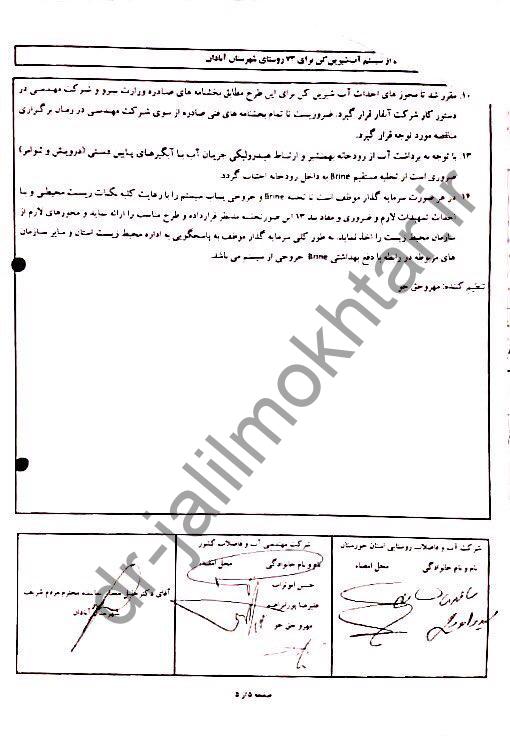 از سیستم آب شیرین کن برای ۷۳ روستای شهرستان آبادان
۱۰. مقرر شد تا مجوز های احداث آب شیرین کن برای این طرح مطابق بخشنامه های صادره وزارت نیرو و شرکت مهندسی در
دستور کار شرکت آبفار قرار گیرد. ضروریست تا تمام بخشنامه های فنی صادره از سوی شرکت مهندسی در زمان برگزاری
مناقصه مورد توجه قرار گیرد.
۱۳. با توجه به برداشت آب از رودخانه بهمنشیر و ارتباط هیدرولیکی جریان آب با آبگیرهای پایین دستی
ضروری است از تخلیه مستقیم Brine به داخل رودخانه اجتناب گردد.
۱۴. در هر صورت سرمایه گذار موظف است تا تخلیه Brine و خروجی پساب سیستم را با رعایت کلیه نکات زیست محیطی و با
احداث تمهیدات لازم و ضروری و مفاد بند ۱۳ این صورتجلسه مدنظر قرار داده و طرح مناسب را ارائه نماید و مجوزهای لازم از
سازمان محیط زیست را اخذ نماید. به طور کلی سرمایه گذار موظف به پاسخگویی به اداره محیط زیست استان و سایر سازمان
های مربوطه در رابطه با دفع بهداشتی Brine خروجی از سیستم می باشد.
تنظیم کننده: مهرو حق جو
dr-jalilmokhtar.ir
شرکت آب و فاضلاب روستایی استان خوزستان
نام و نام خانوادگی محل امضاء
شرکت مهندسی آب و فاضلاب کشور
نام و نام خانوادگی محل امضاء
حسن ابوتراب
علیرضا
مهرو حق جو
آقای دکتر جلیل مختار نماینده محترم مردم شریف
شهرستان آبادان
صفحه ۵ از ۵